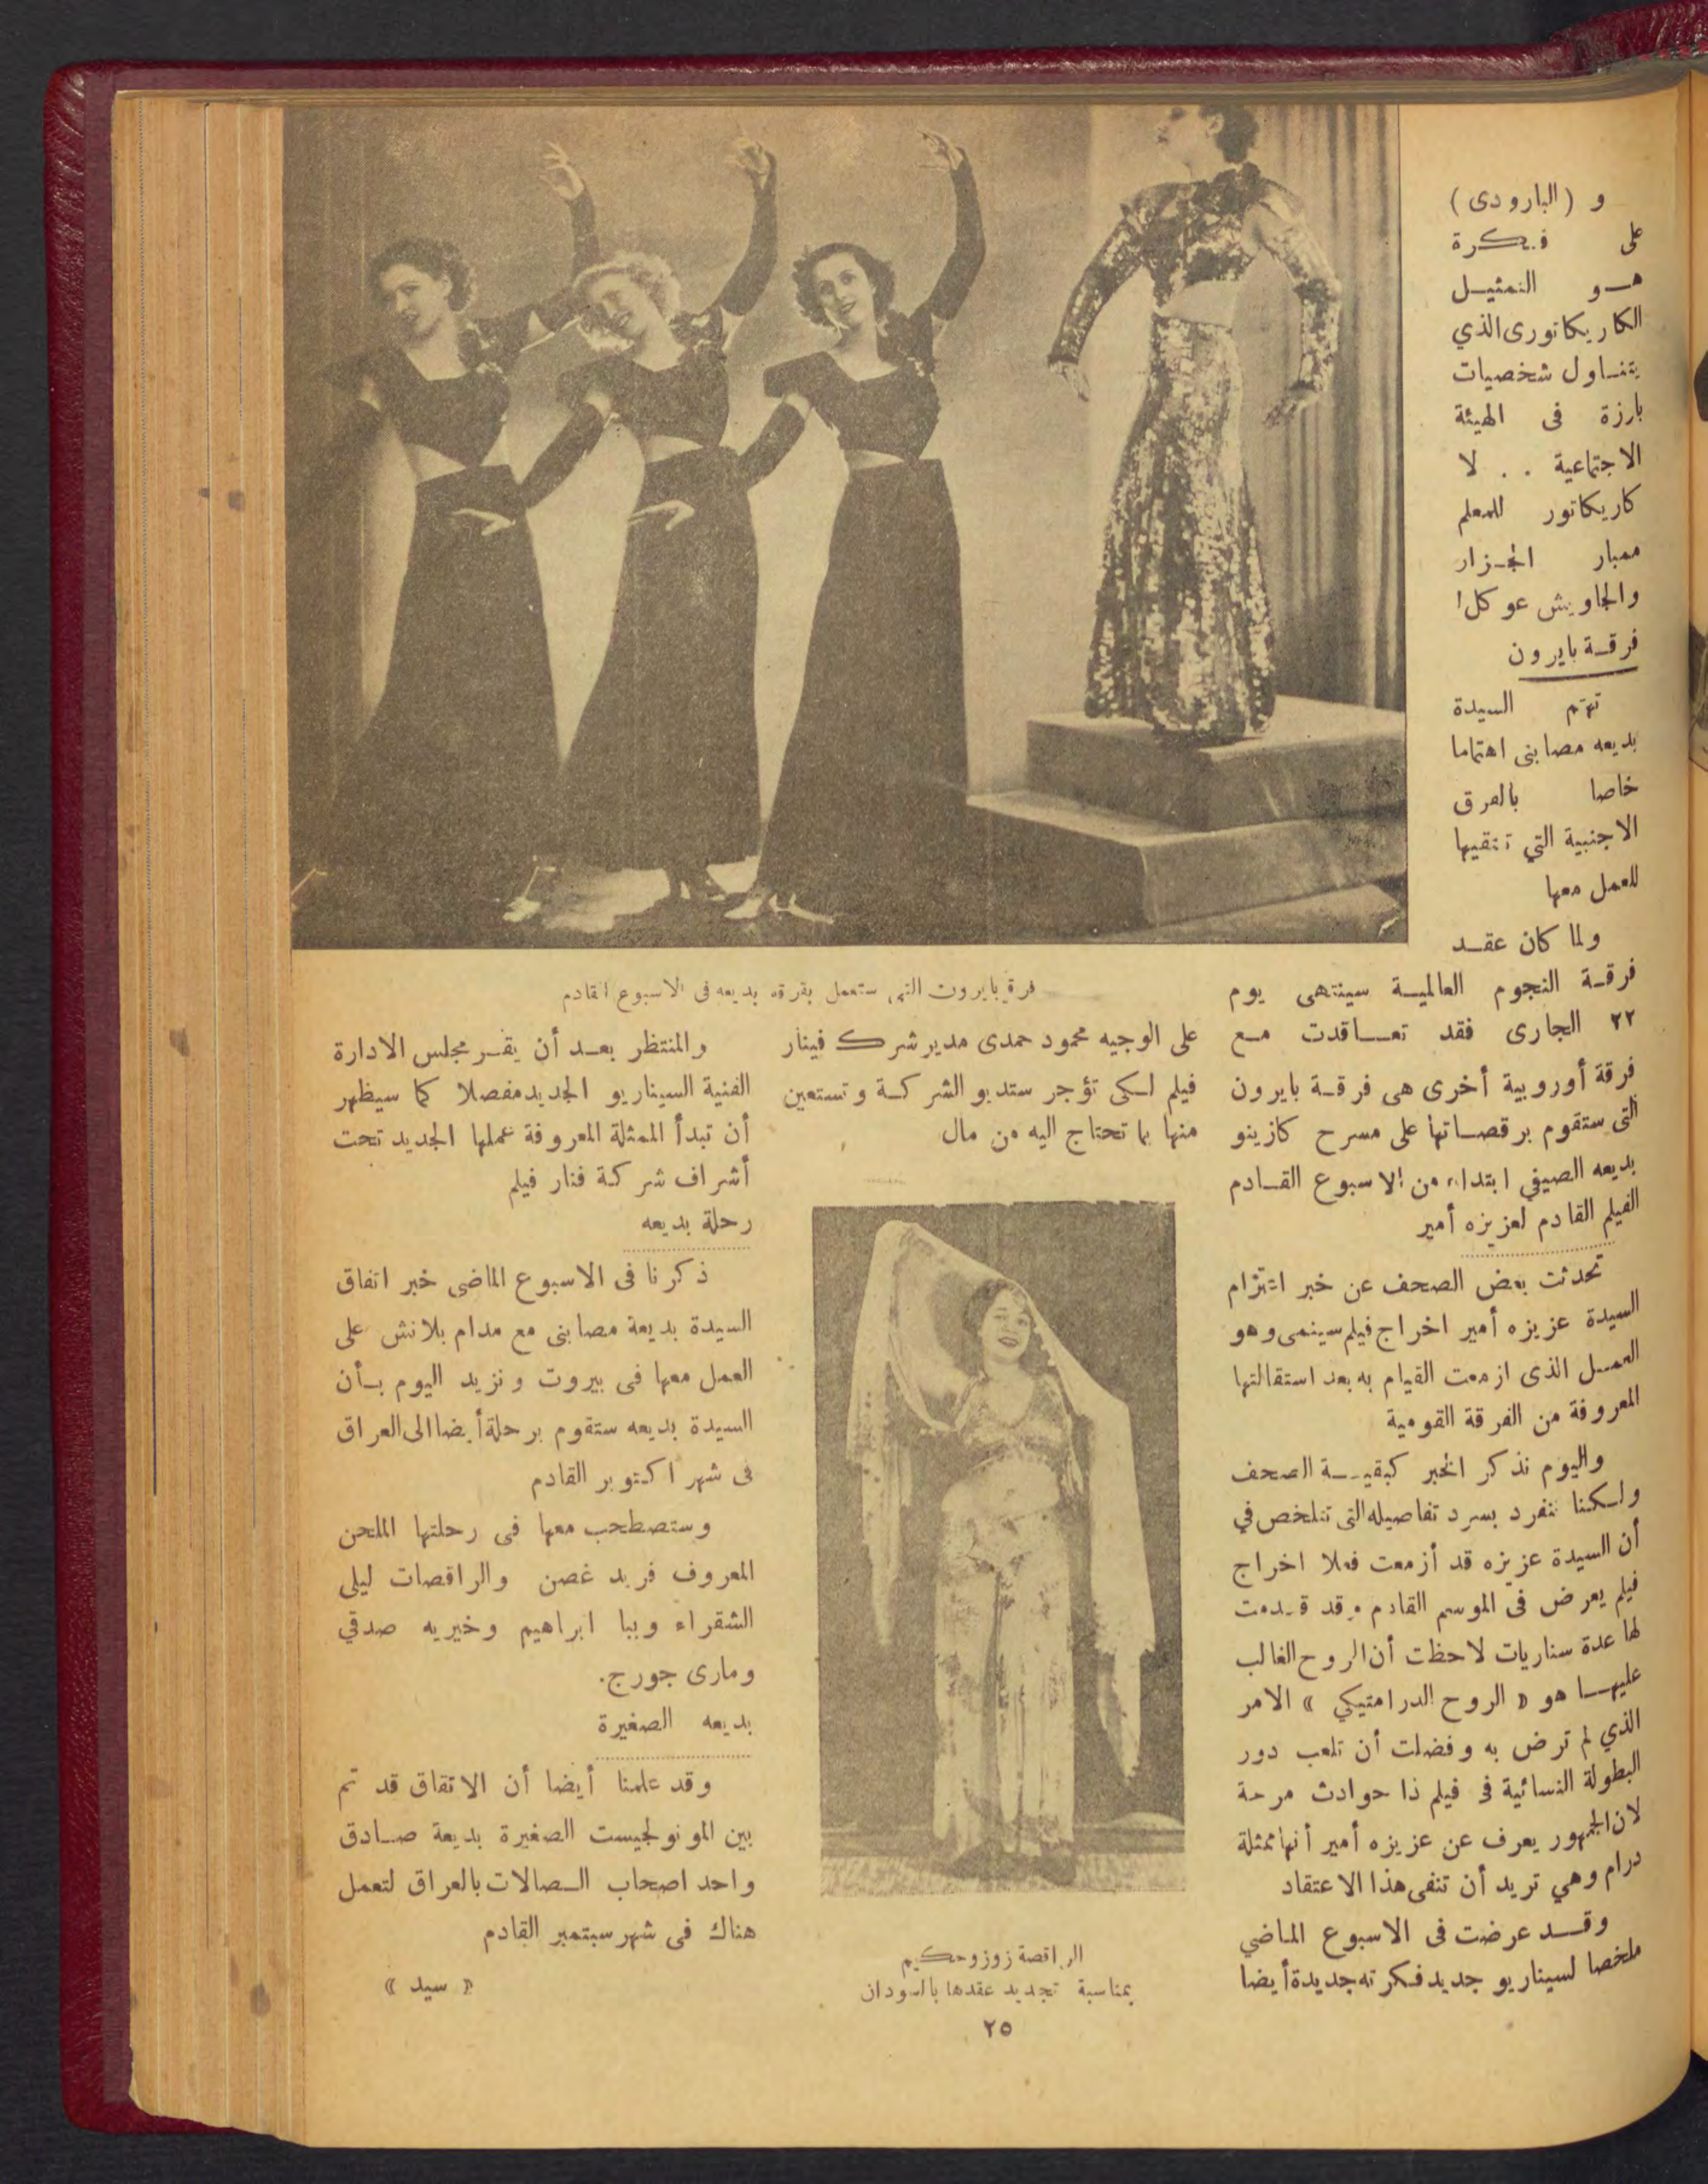 و (البارودى)
على فكرة
هو التمثيل
الكاريكاتورى الذي
يتناول شخصيات
بارزة فى الهيئة
الاجتماعية . . لا
كاريكاتور للمعلم
ممبار الجزار
والجاويش عوكل!
فرقة بايرون
تهتم السيدة
بديعه مصابنى اهتماما
خاصا بالفرق
الاجنبية التي تنتقيها
للعمل معها
ولما كان عقد
فرقة النجوم العالمية سينتهى يوم
٢٢ الجارى فقد تعاقدت مع
فرقة أوروبية أخرى هى فرقة بايرون
التى ستقوم برقصاتها على مسرح كازينو
بديعه الصيفي ابتداء من الاسبوع القادم
الفيلم القادم لعزيزه أمير
تحدثت بعض الصحف عن خبر اعتزام
السيدة عزيزه أمير اخراج فيلم سينمى وهو
العمل الذى ازمعت القيام به بعد استقالتها
المعروفة من الفرقة القومية
واليوم نذكر الخبر كبقية الصحف
ولكننا ننفرد بسرد تفاصيله التى تتلخص في
أن السيدة عزيزه قد أزمعت فعلا اخراج
فيلم يعرض فى الموسم القادم وقد قدمت
لها عدة سناريات لاحظت أن الروح الغالب
عليها هو « الروح الدرامتيكي » الامر
الذي لم ترض به وفضلت أن تلعب دور
البطولة النسائية فى فيلم ذا حوادث مرحة
لان الجمهور يعرف عن عزيزه أمير أنها ممثلة
درام وهي تريد أن تنفى هذا الاعتقاد
وقد عرضت فى الاسبوع الماضي
ملخصا لسيناريو جديد فكرته جديدة أيضا
فرقة بايرون التى ستعمل بفرقة بديعه فى الاسبوع القادم
على الوجيه محمود حمدى مدير شرك فينار
فيلم لكى تؤجر ستديو الشركة وتستعين
منها بما تحتاج اليه من مال
الراقصة زوزو حكيم
بمناسبة تجديد عقدها بالسودان
والمنتظر بعد أن يقر مجلس الادارة
الفنية السيناريو الجديد مفصلا كما سيظهر
أن تبدأ الممثلة المعروفة عملها الجديد تحت
أشراف شركة فنار فيلم
رحلة بديعه
ذكرنا فى الاسبوع الماضى خبر اتفاق
السيدة بديعة مصابنى مع مدام بلانش على
العمل معها فى بيروت ونزيد اليوم بأن
السيدة بديعه ستقوم برحلة أيضا الى العراق
فى شهر اكتوبر القادم
وستصطحب معها فى رحلتها الملحن
المعروف فريد غصن والراقصات ليلى
الشقراء وببا ابراهيم وخيريه صدقي
ومارى جورج.
بديعه الصغيرة
وقد علمنا أيضا أن الاتفاق قد تم
بين المونولجيست الصغيرة بديعة صادق
واحد اصحاب الصالات بالعراق لتعمل
هناك فى شهر سبتمبر القادم
« سيد »
٢٥